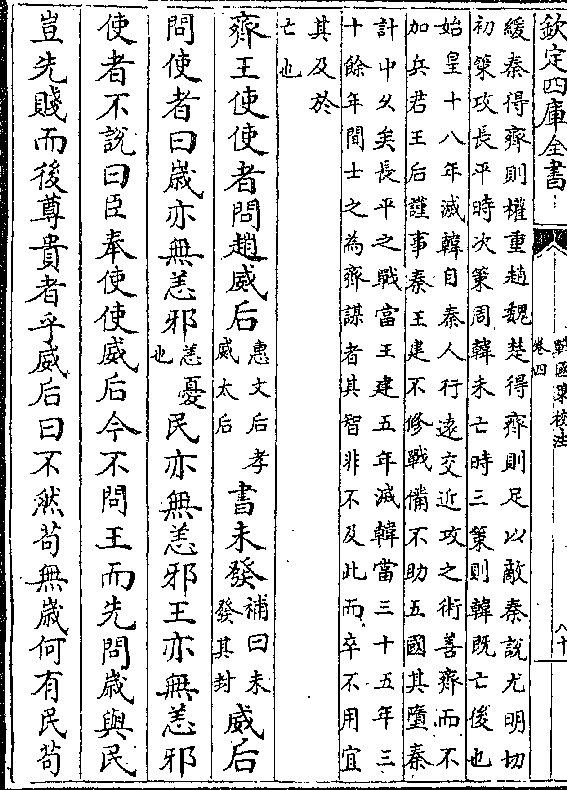 欽定四庫全書
戰國策校注
卷四
八十
緩秦得齊則權重趙魏楚得齊則足以敵秦說尤明切
初策攻長平時次策周韓未亡時三策則韓既亡後也
始皇十八年滅韓自秦人行遠交近攻之術善齊而不
加兵君王后謹事秦王建不修戰備不助五國其墮秦
計中久矣長平之戰當王建五年滅韓當三十五年三
十餘年間士之為齊謀者其智非不及此而卒不用宜
其及於
亡也
齊王使使者問趙威后惠文后孝威太后書未發補曰未發其封威后
問使者曰歲亦無恙邪恙憂也民亦無恙邪王亦無恙邪
使者不說曰臣奉使使威后今不問王而先問歲與民
豈先賤而後尊貴者乎威后曰不然苟無歲何有民苟